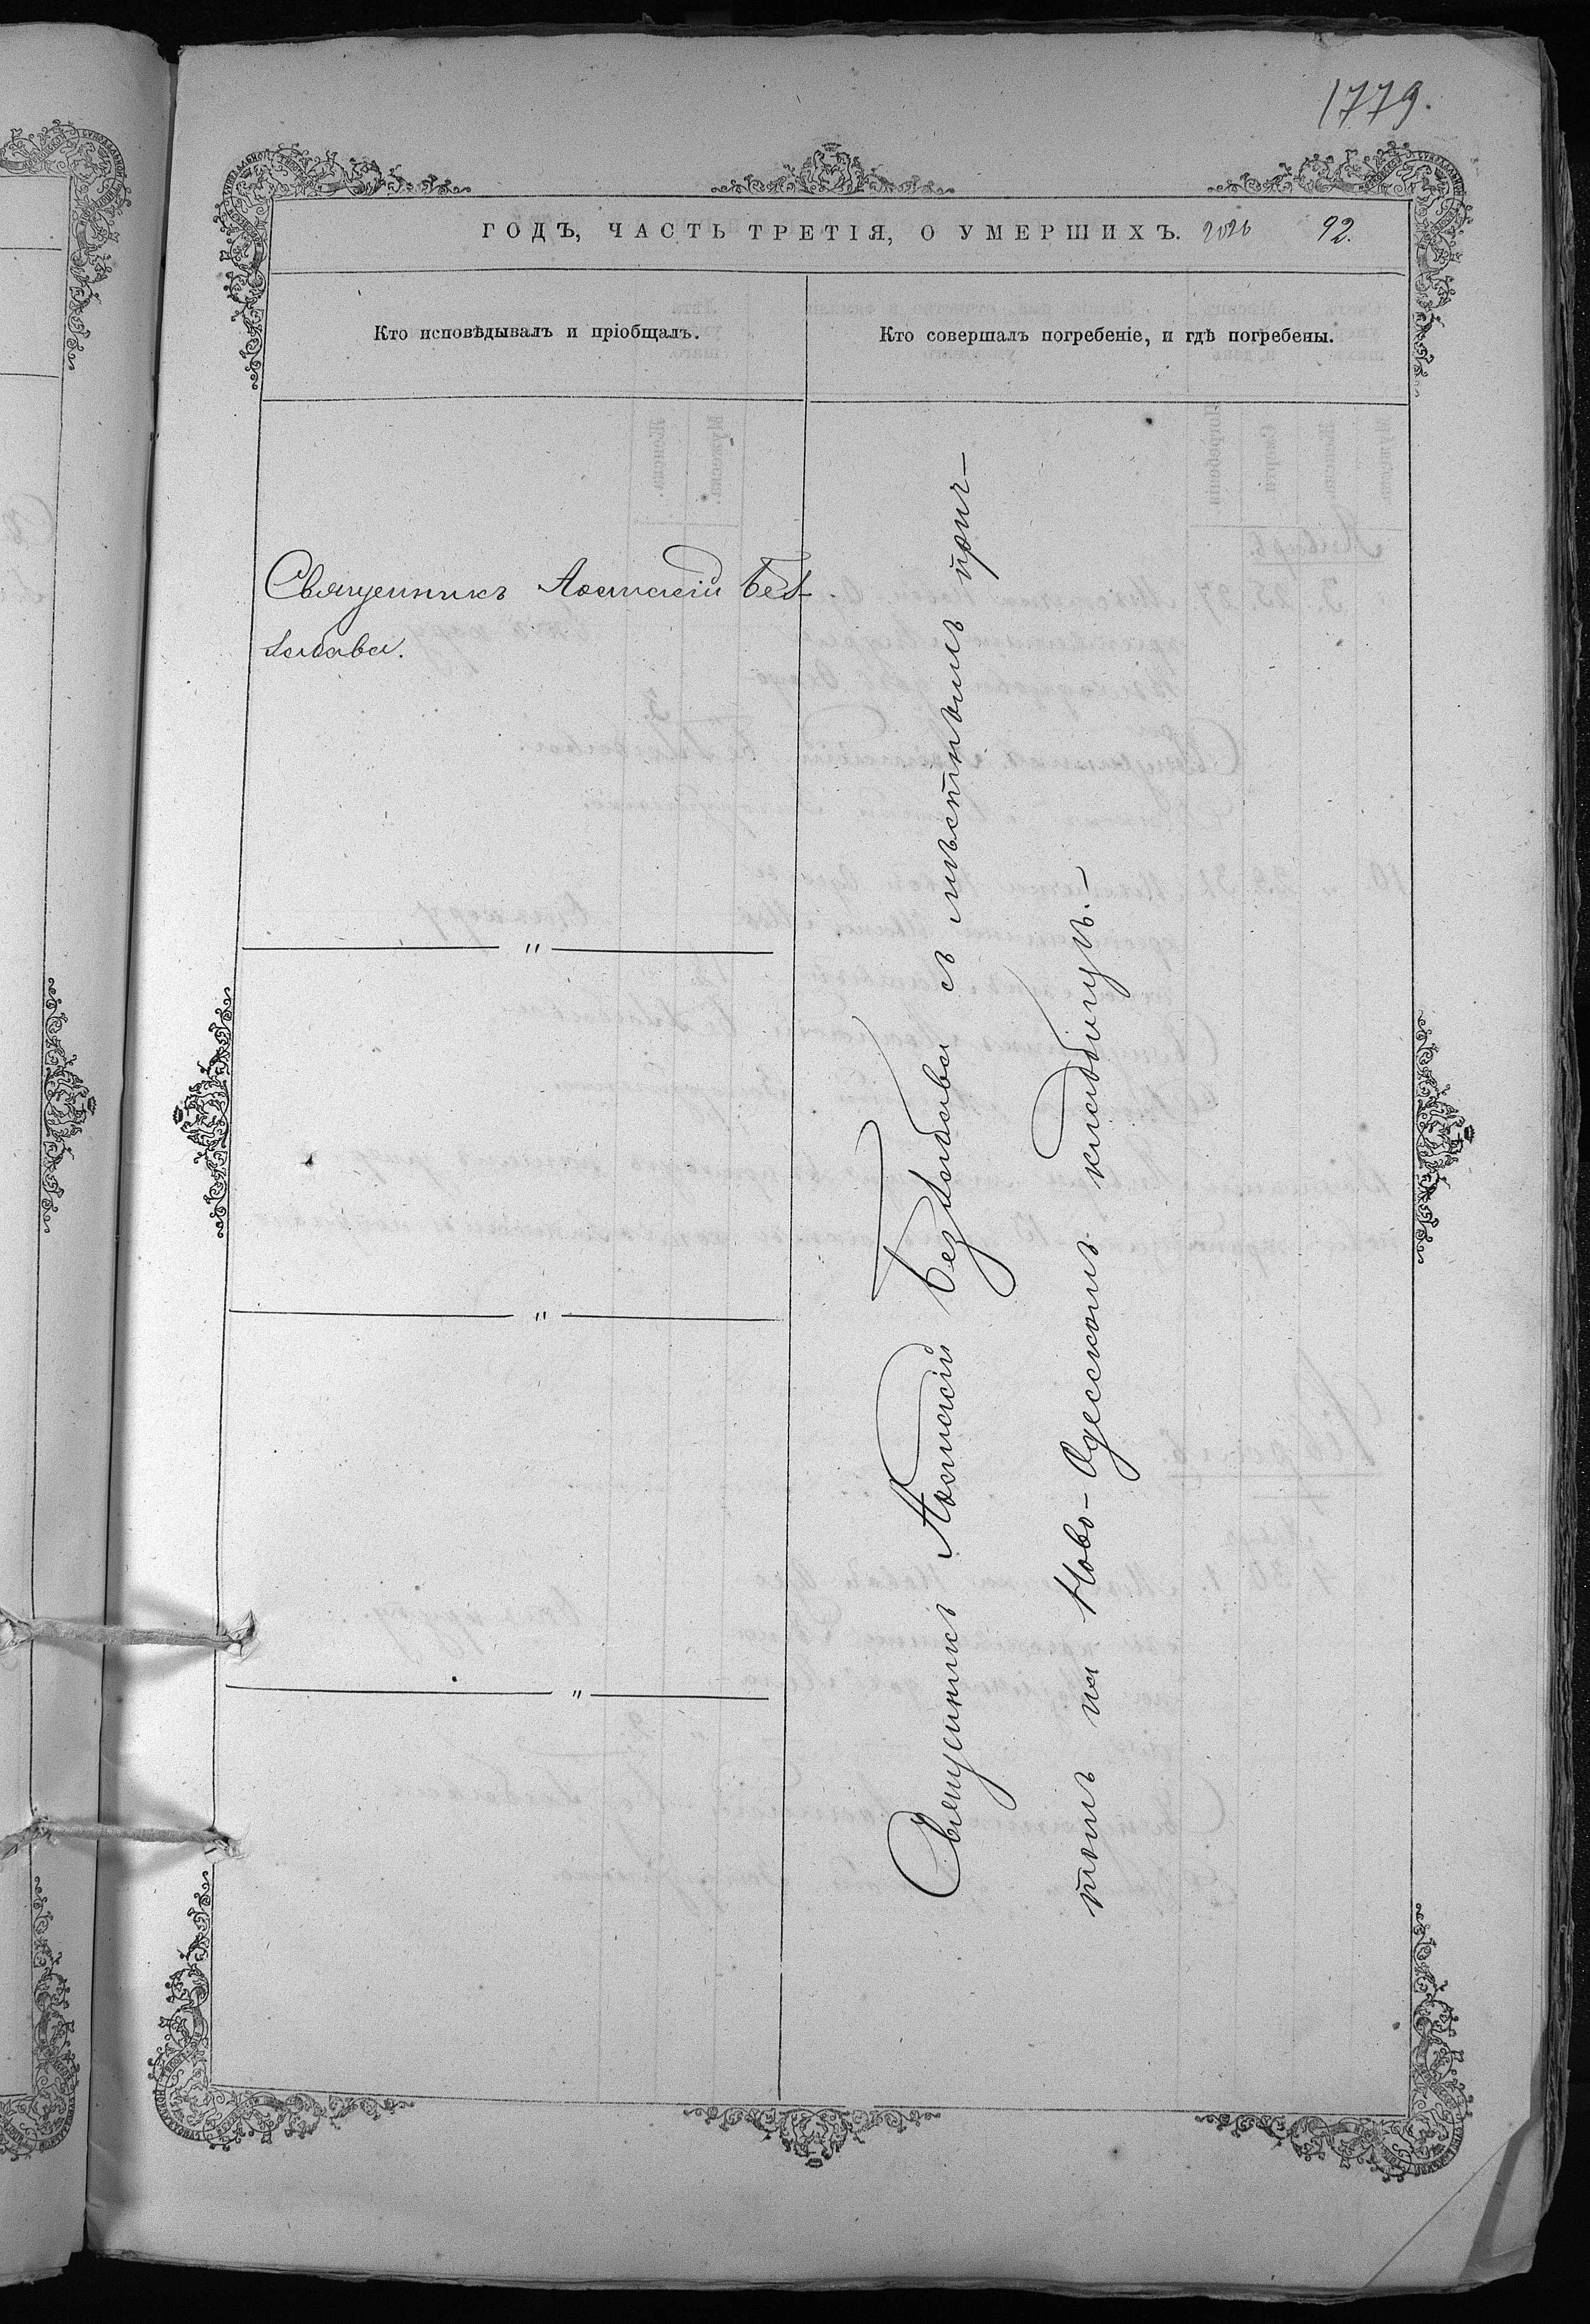 1779.
ГОДЪ, ЧАСТЬ ТРЕТІЯ, О УМЕРШИХЪ. 92.
Кто исповѣдывалъ и пріобщалъ.
Кто совершалъ погребеніе, и гдѣ погребены.
Священникъ Без-
забава.
"
"
"
Священникъ Беззабава съ мѣстнымъ прич-
томъ на Ново-Одесскомъ кладбищѣ.